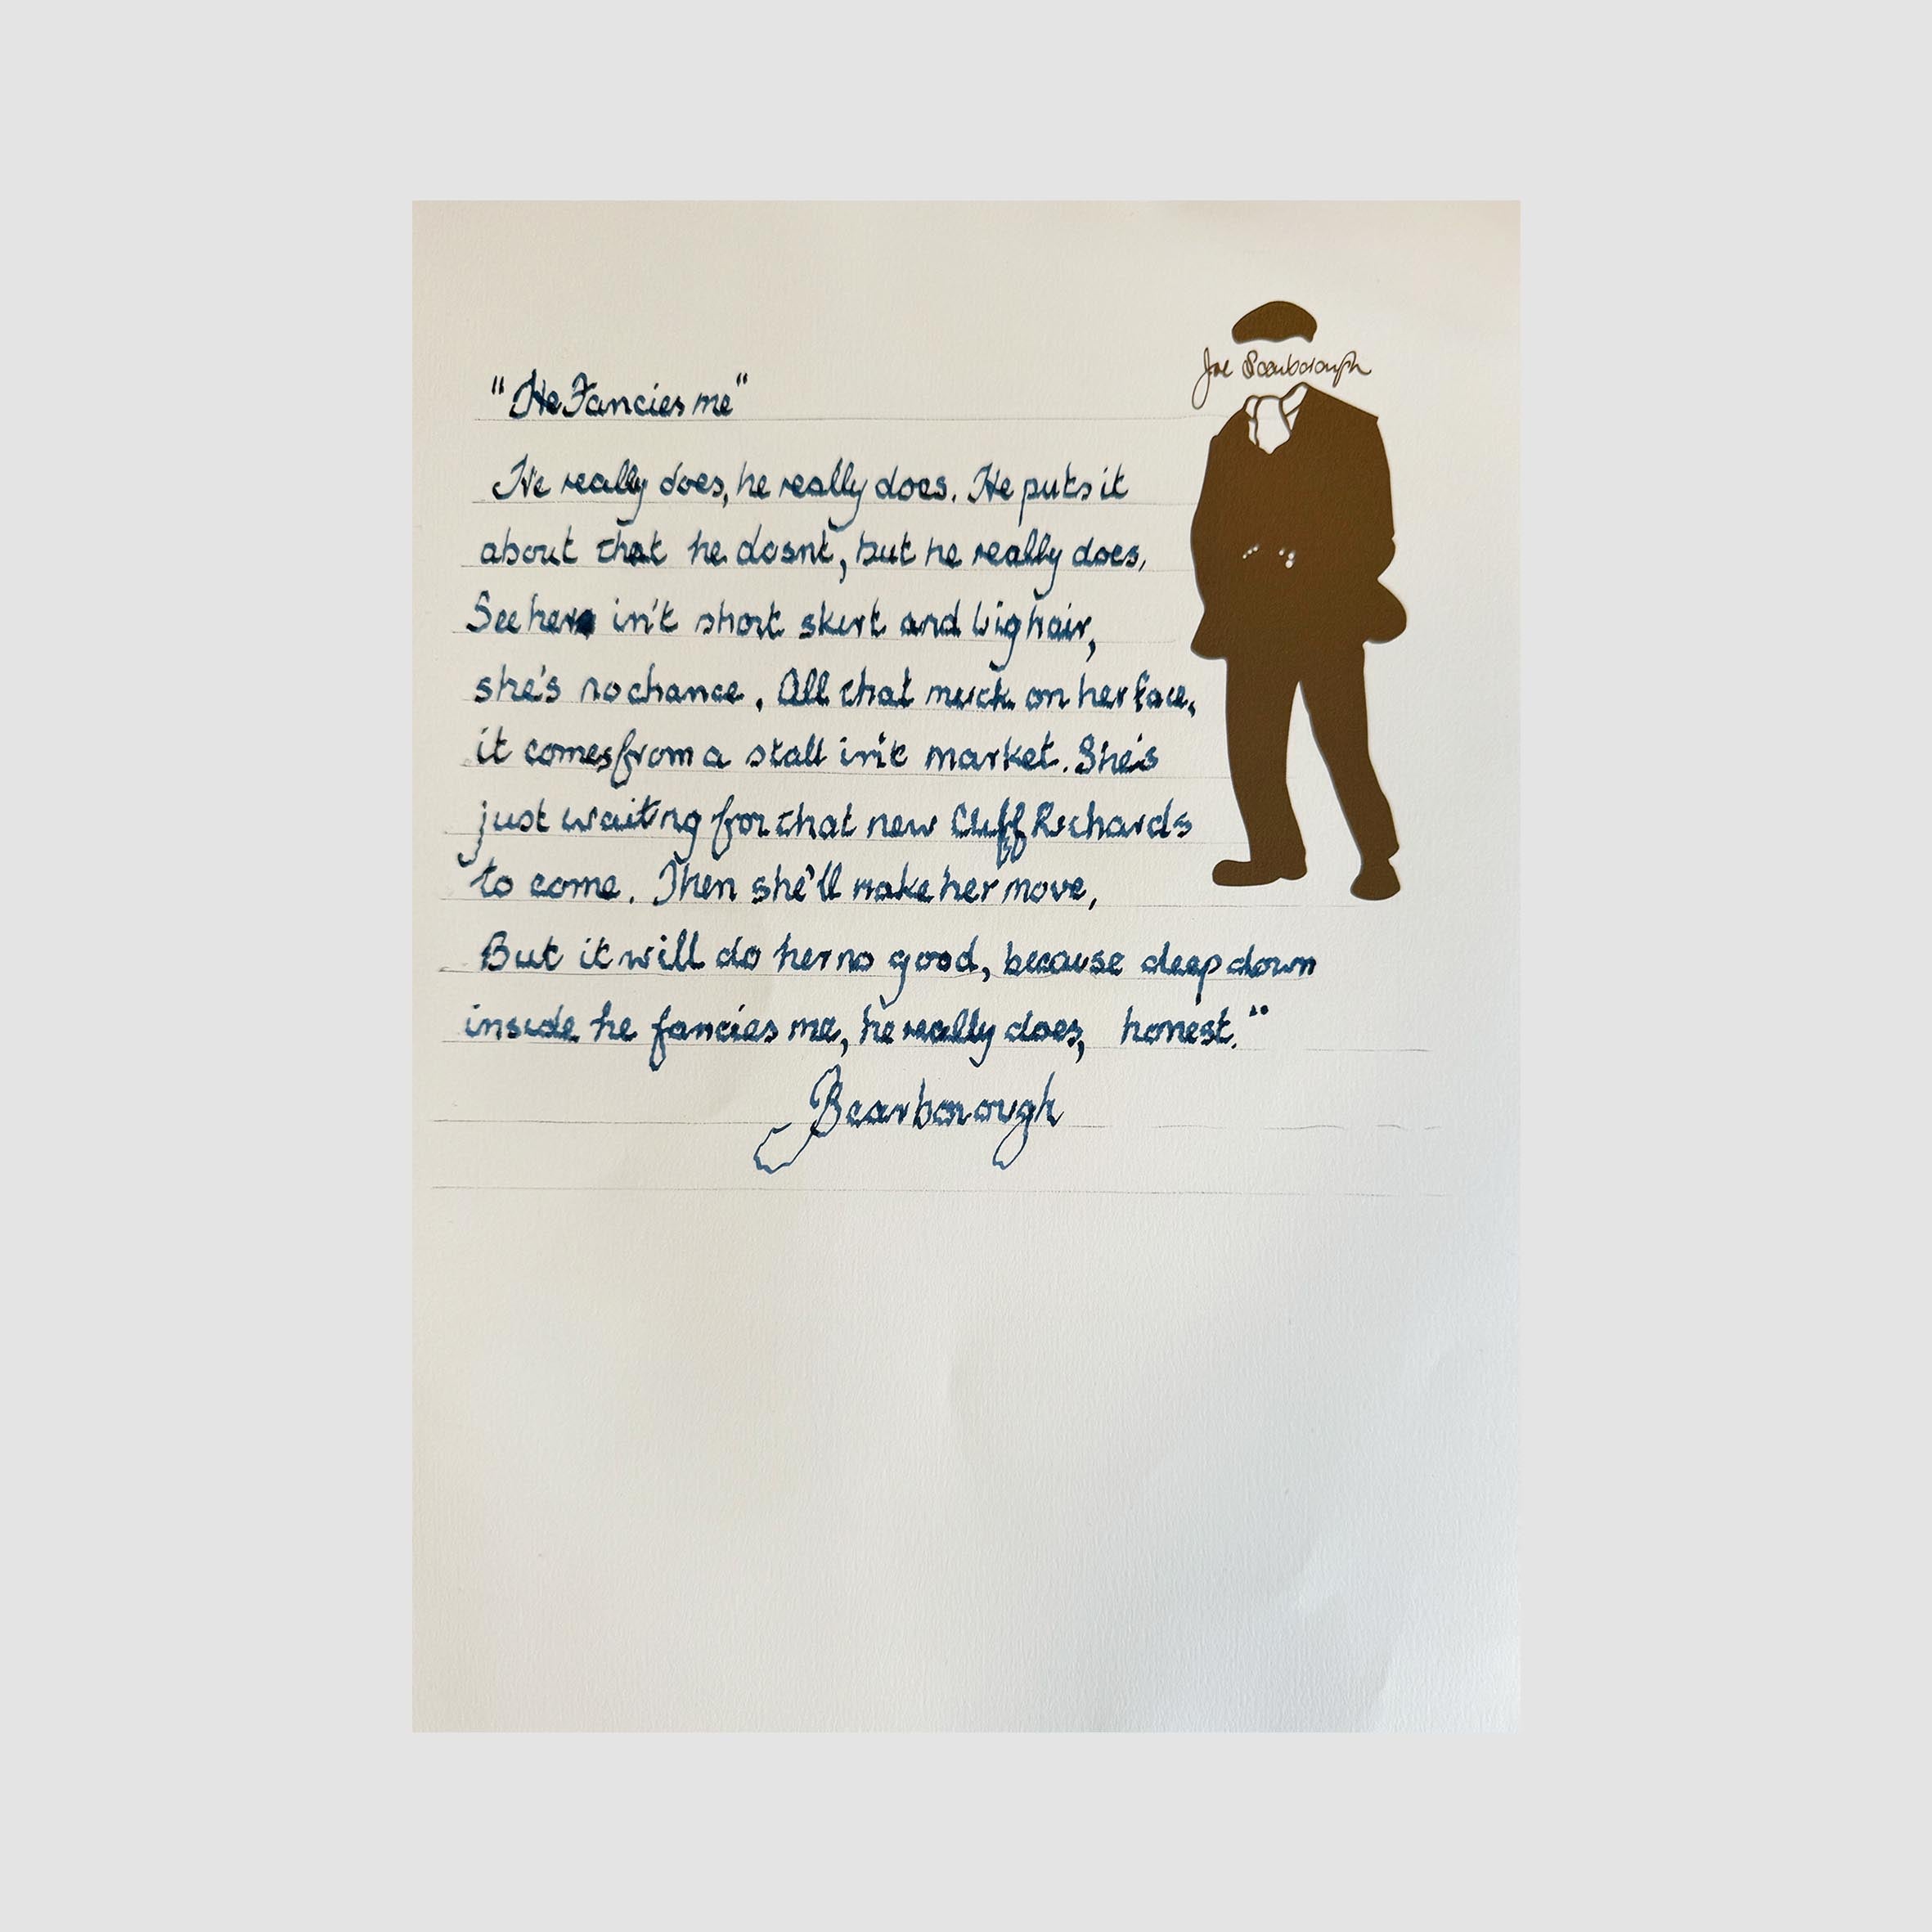 Joe Scarborough
"He Fancies me"
He really does, he really does. He puts it
about that he dosnt, but he really does,
See her in't short skirt and big hair,
she's no chance. All that muck on her face,
it comes from a stall in't market. She's
just waiting for that new Cliff Richards
to come. Then she'll make her move,
But it will do her no good, because deep down
inside he fancies me, he really does, honest."
JScarborough